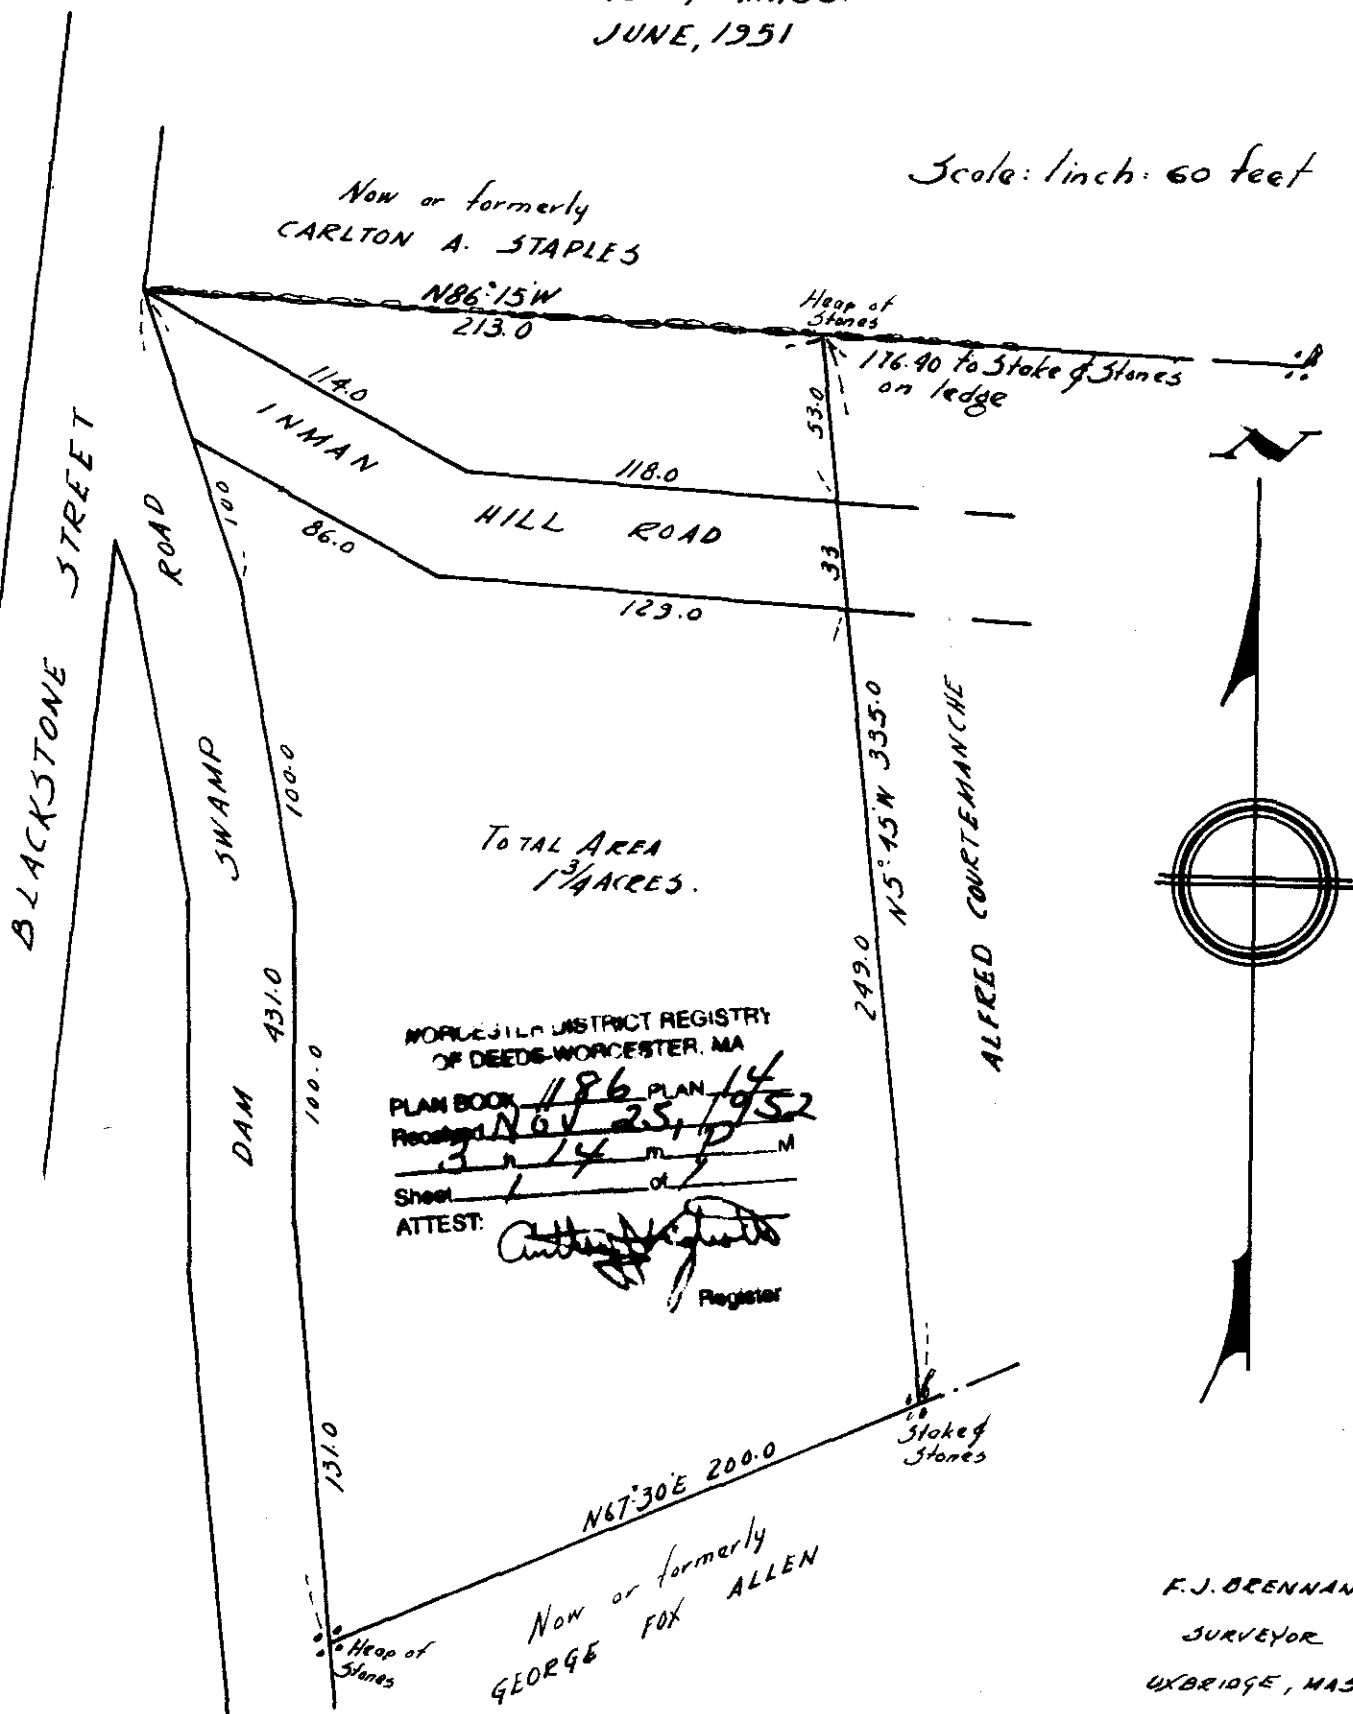 JUNE, 1951
Scale: 1 inch: 60 feet
Now or formerly
CARLTON A. STAPLES
N86°15'W
213.0
Heap of
Stones
176.40 to Stake & Stones
on ledge
114.0
INMAN
HILL ROAD
118.0
53.0
33
86.0
129.0
100
N
BLACKSTONE STREET
DAM SWAMP ROAD
100.0
431.0
100.0
131.0
TOTAL AREA
1 3/4 ACRES.
N5°45'W 335.0
249.0
ALFRED COURTEMANCHE
WORCESTER DISTRICT REGISTRY
OF DEEDS-WORCESTER, MA
PLAN BOOK 186 PLAN 14
Received Nov 25, 1952
3 h 14 m P M
Sheet 1 of 1
ATTEST:
Register
Stake &
Stones
N67°30'E 200.0
Now or formerly
GEORGE FOX ALLEN
Heap of
Stones
F.J. BRENNAN
SURVEYOR
UXBRIDGE, MAS